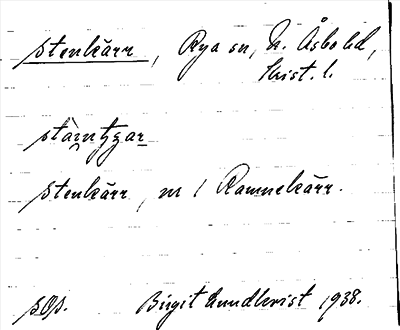 stenkärr, Rya sn, N. Åsbo hd,
Krist. l.
stäintzar
stenkärr, nr 1 Ramnekärr.
sOp. Birgit Lundkvist 1938.